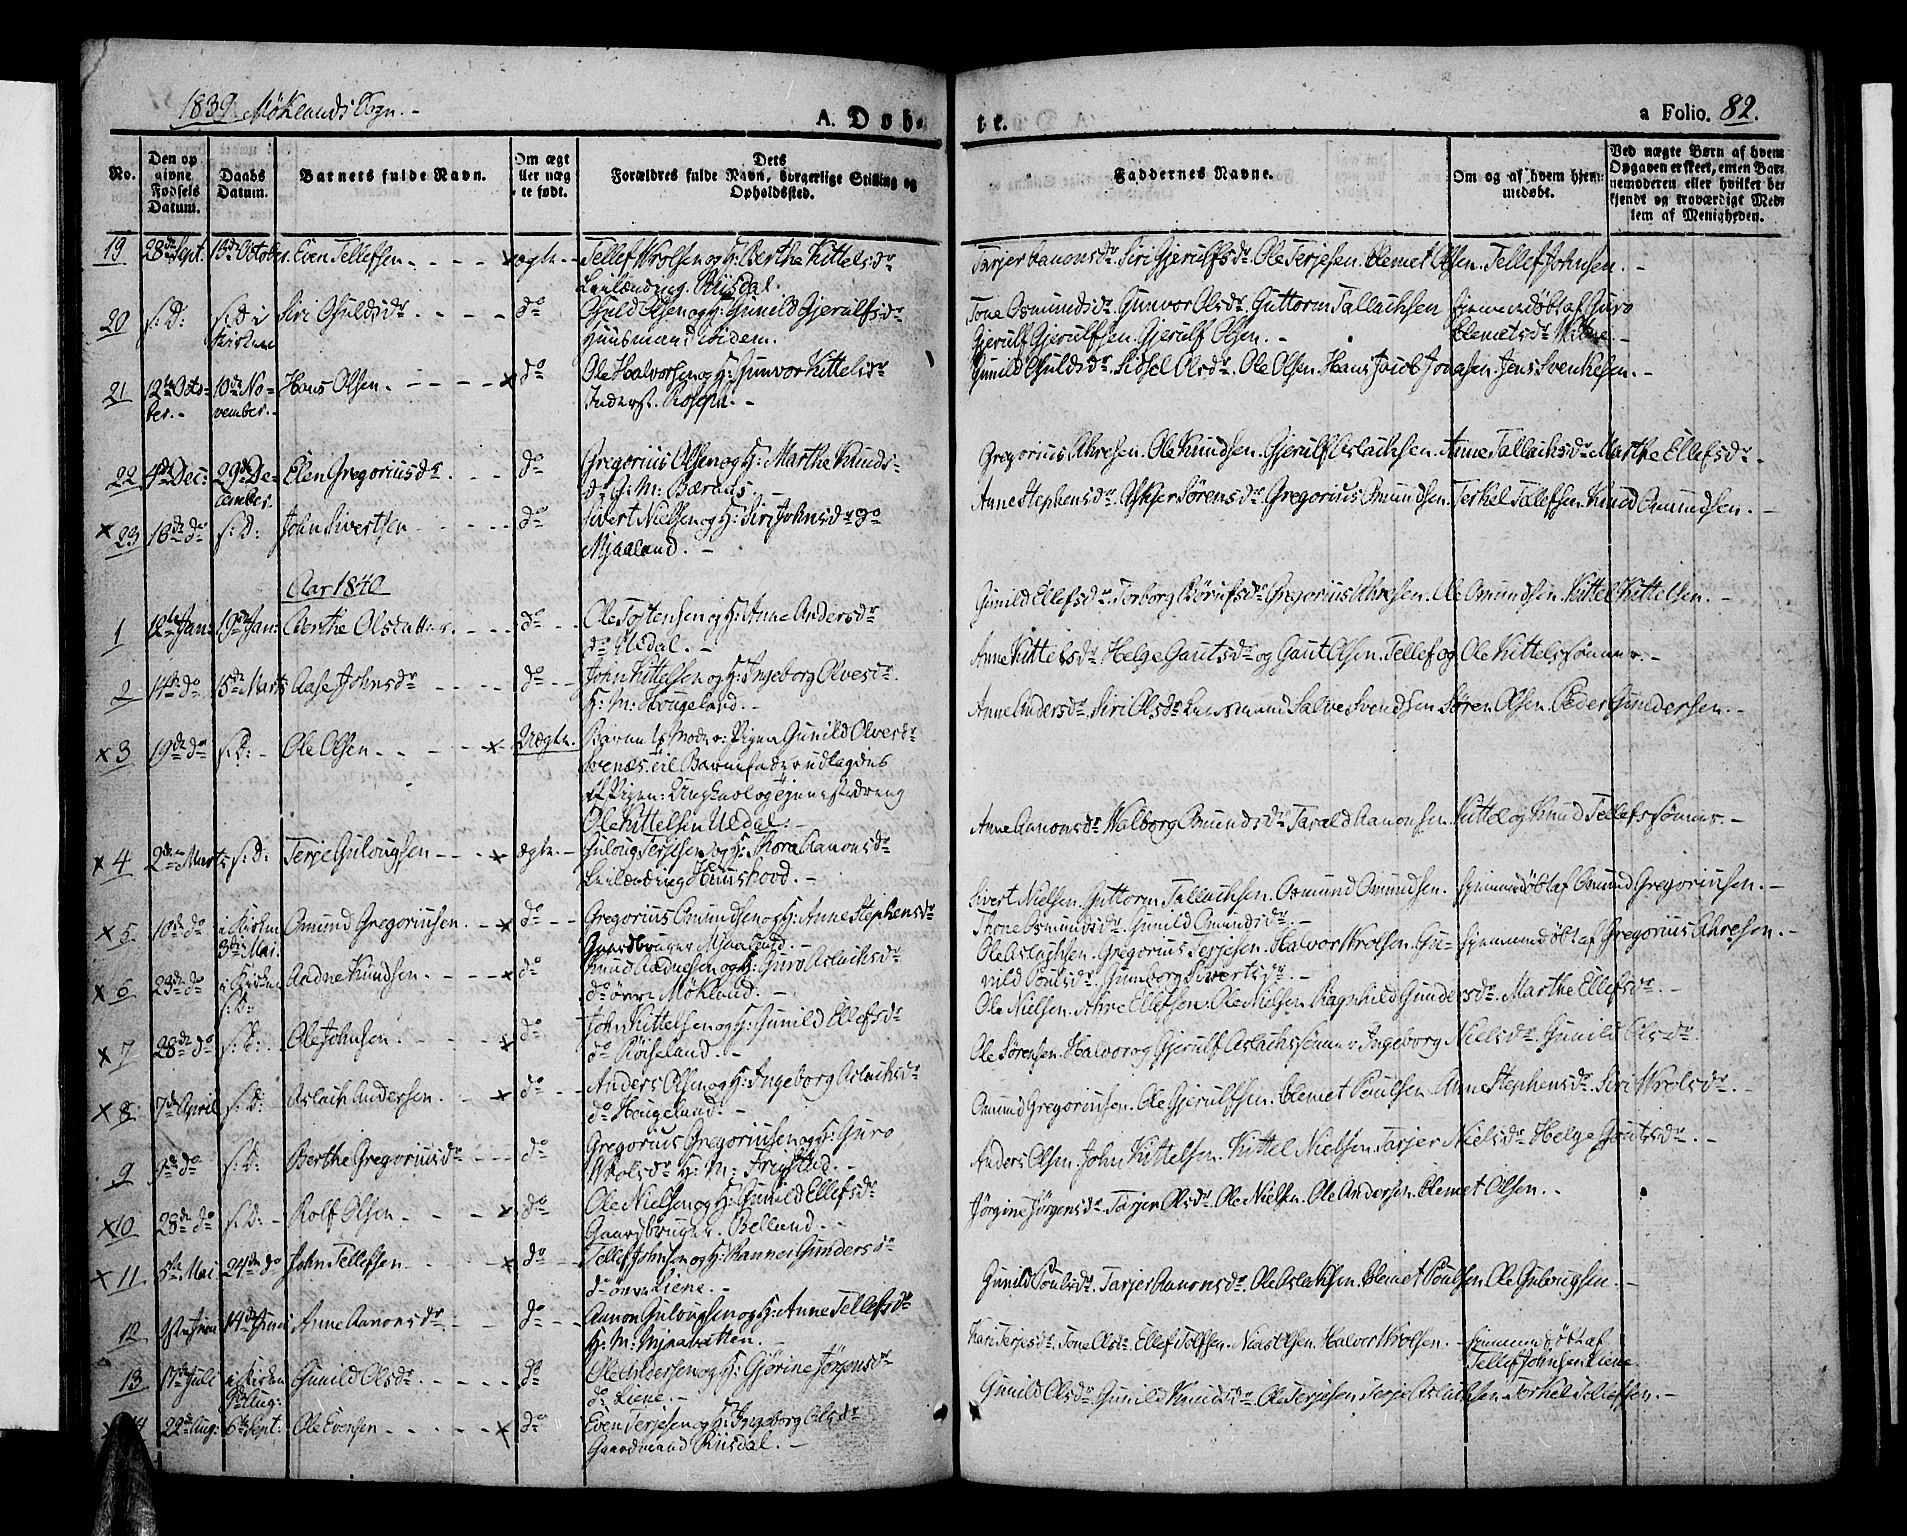 1839 Møklands Sogn. -
A. Døb-
te.
a Folio. 82.
No.
Den op
givne
Fødsels
Datum.
Daabs
Datum.
Barnets fulde Navn.
Om ægt
ller uæg
te født.
Dets
Forældres fulde Navn, borgerlige Stilling og
Opholdssted.
Faddernes Navne.
Om og af hvem hjem-
medøbt.
Ved uægte Børn af hvem
Opgaven er skeet, enten Bar-
nemoderen eller hvilket be-
kjendt og troværdigt Med-
lem af Menigheden.
19 28de Sept. 13de October. Even Tellefsen. x ægte. Tellef Wrolsen og H: Berthe Kittelsdr
Leilænding. Riisdal.
Tarjer Aanonsdr. Siri Gjerulfsdr. Ole Terjesen. Clemet Olsen. Tellef Johnsen.
20 s: D: s: D: i
Kirken
Siri Ohuldsdr. do Ohuld Olsen og H: Gunild Gjerulfsdr
Huusmand ibidem.
Tone Osmundsdr. Gunvor Olsdr. Guttorm Tallachsen
Gjerulf Gjerulfsen. Gjerulf Olsen.
hjemmedøbt af Guro
Clemetsdr
21 12te Octo-
ber. 10de No-
vember. Hans Olsen. x do Ole Halvorsen og H: Gunvor Kittelsdr
Inderst.
Gunild Ohuldsdr. Sidsel Olsdr. Ole Olsen. Hans Jacob Jonassen. Jens Svenkesen.
22 4de Dec: 29de De-
cember. Elen Gregoriusdr. do Gregorius Olsen og H: Marthe Knuds-
dr G: M:
Gregorius Ahresen. Ole Knudsen. Gjerulf Aslachsen. Anne Tallachsdr Marthe Ellefsdr.
x 23 16de do s: D: John Sivertsen do Sivert Nielsen og H: Siri Johnsdr do
Mjaaland.
Anne Stephensdr. Sørensdr. Gregorius Omundsen. Terkel Tellefsen. Knud Omundsen.
Aar 1840
1 12te Jan: 19de Jan: Berthe Olsdatter. do Ole Tostensen og H: Anne Andersdr
do Uldal.
Gunild Ellefsdr. Torborg Gregorius Ahresen. Ole Omundsen. Kittel Kittelsen.
2 14de do 15de Marts Aase Johnsdr do John Kittelsen og H: Ingeborg Olvesdr.
H: M: Hougeland.
Anne Kittelsdr. Helge Gautsdr og Gaut Olsen. Tellef og Ole Kittelssønner.
x 3 19de do s: D: Ole Olsen. x Uægte. Barnets Moder: Pigen Gunild Olvesdr
Svenæs: til Barnefader udlagdes
Ungkarl og Tjenestedreng
Ole Kittelsen Uldal.
Anne Andersdr. Siri Olsdr. Salve Svendsen Søren Olsen. Peder Gundersen.
x 4 2den Marts s: D: Terje Gulougsen x ægte. Guloug Terjesen og H: Thora Aanonsdr
Leilænding
Anne Aanonsdr Walborg Omundsdr Tarald Aanonsen. Kittel og Knud Tellefssønner.
x 5 10de do i Kirken
3die Mai. Omund Gregoriusen. x do Gregorius Omundsen og H: Anne Stephensdr
Gaardbruger Mjaaland.
Sivert Nielsen. Guttorm Tallachsen. Osmund Omundsen.
Thone Osmundsdr. Gunild Omundsdr.
hjemmedøbt af Omund Gregoriusen.
x 6 23de do i Kirken
s: D: Aadne Knudsen. x do Knud Aadnesen og H: Guro Aslachsdr
do øvre Møkland.
Ole Aslachsen. Gregorius Terjesen. Halvor Wrolsen. Gu-
nild Poulsdr. Gunborg Sivertsdr.
hjemmedøbt af Gregorius Ahresen.
x 7 28de do s: D: Ole Johnsen. x do John Kittelsen og H: Gunild Ellefsdr
do Røiseland.
Ole Nielsen. Ahre Ellefsen. Ole Nielsen. Ragnhild Gundersdr. Marthe Ellefsdr.
x 8 7de April s: D: Aslach Andersen. x do Anders Olsen og H: Ingeborg Aslachsdr
do Hougeland.
Ole Sørensen. Halvor og Gjerulf Aslachssønner Ingeborg Nielsdr. Gunild Olsdr.
9 do s: D: Berthe Gregoriusdr do Gregorius Gregoriusen og H: Guro
Wrolsdr H: M: Frigstad.
Omund Gregoriusen. Ole Gjerulfsen. Clemet Poulsen. Anne Stephensdr. Siri Wrolsdr.
x 10 28de do s: D: Rolf Olsen. x do Ole Nielsen og H: Gunild Ellefsdr
Gaardbruger. Belland.
Anders Olsen. John Kittelsen. Kittel Nielsen. Tarjer Nielsdr. Helge Gautsdr.
x 11 5te Mai 24de do John Tellefsen x do Tellef Johnsen og H: Gundersdr
do øvre Liene.
Jørgine Jørgensdr. Tarjer Olsdr. Ole Nielsen. Ole Andersen. Clemet Olsen.
12 14de Juni Anne Aanonsdr. do Aanon Gulougsen og H: Anne Tellefsdr
H: M: Mjaavatten.
Gunild Poulsdr. Tarjer Aanonsdr. Ole Aslaksen. Clemet Poulsen Ole Gulougsen.
13 17de Juli i Kirken
9de Aug: Gunild Olsdr. do Ole Andersen og H: Gjørine Jørgensdr
do Liene.
Kari Terjesdr. Tone Olsdr. Ellef Tolfsen. Olsen. Halvor Wrolsen.
hjemmedøbt af
Tellef Johnsen Liene.
x 14 22de Aug: 6te Sept. Ole Evensen x do Even Terjesen og H: Ingeborg Olsdr
Gaardmand Riisdal.
Gunild Olsdr. Gunild Knudsdr. Ole Terjesen Terje Aslachsen. Torkel Tellefsen.